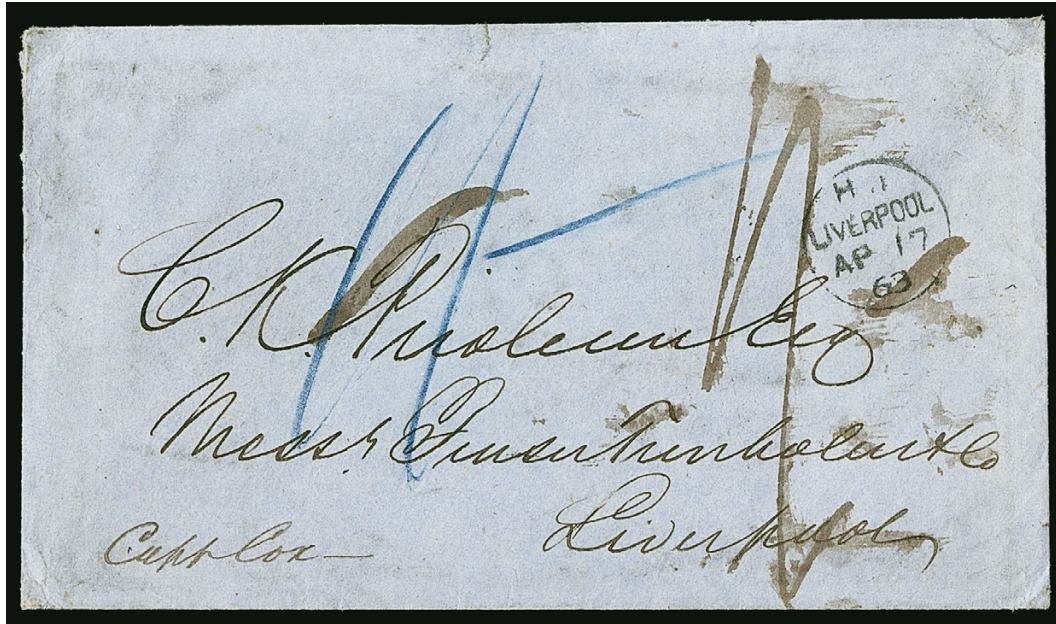 H.1
LIVERPOOL
AP 17
63
C. K. Prioleau Esq
Messrs Fraser Trenholm & Co
Liverpool
Capt Cox